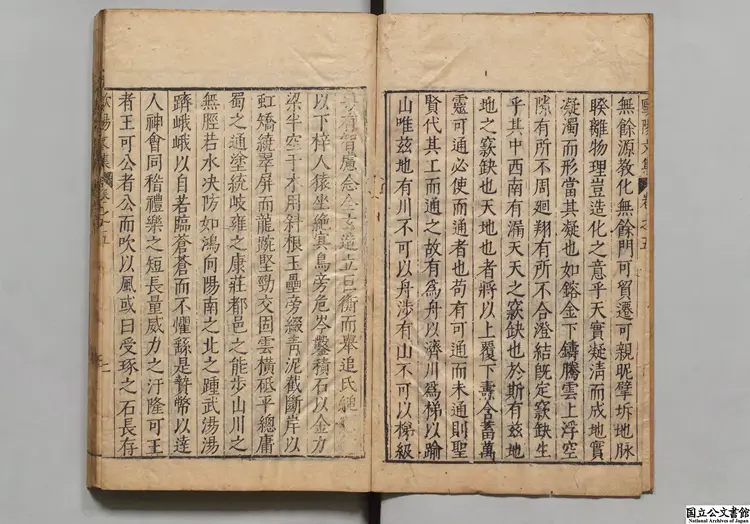 歐陽文集 卷之五
無餘源教化無餘門可貿遷可親昵擘坼地脉
睽離物理豈造化之意乎天實凝清而成地實
凝濁而形當其凝也如鎔金下鑄騰雲上浮空
隙有所不周廻翔有所不合澄結既定竅缺生
乎其中西南有漏天天之竅缺也於斯有兹地
地之竅缺也天地也者將以上覆下燾含蓄萬
靈可通必使而通者也苟有可通而未通則聖
賢代其工而通之故有爲舟以濟川爲梯以踰
山唯兹地有川不可以舟涉有山不可以梯級
有智慮念全玄造立巨衡而舉追氏縋
以下梓人猿坐絶冥鳥旁危岑鑿積石以金力
梁半空于木用斜根玉壘旁綴青泥截斷岸以
虹矯繞翠屏而龍蜿堅勁交固雲橫砥平總庸
蜀之通塗統岐雍之康莊都邑之能步山川之
無脛若水決防如鴻向陽南之北之踵武湯湯
躋峨峨以自若臨蒼蒼而不懼繇是贄幣以達
人神會同稽禮樂之短長量威力之汙隆可王
者王可公者公而吹以風或曰受琢之石長存
歐陽文集 卷之五
国立公文書館
National Archives of Japan